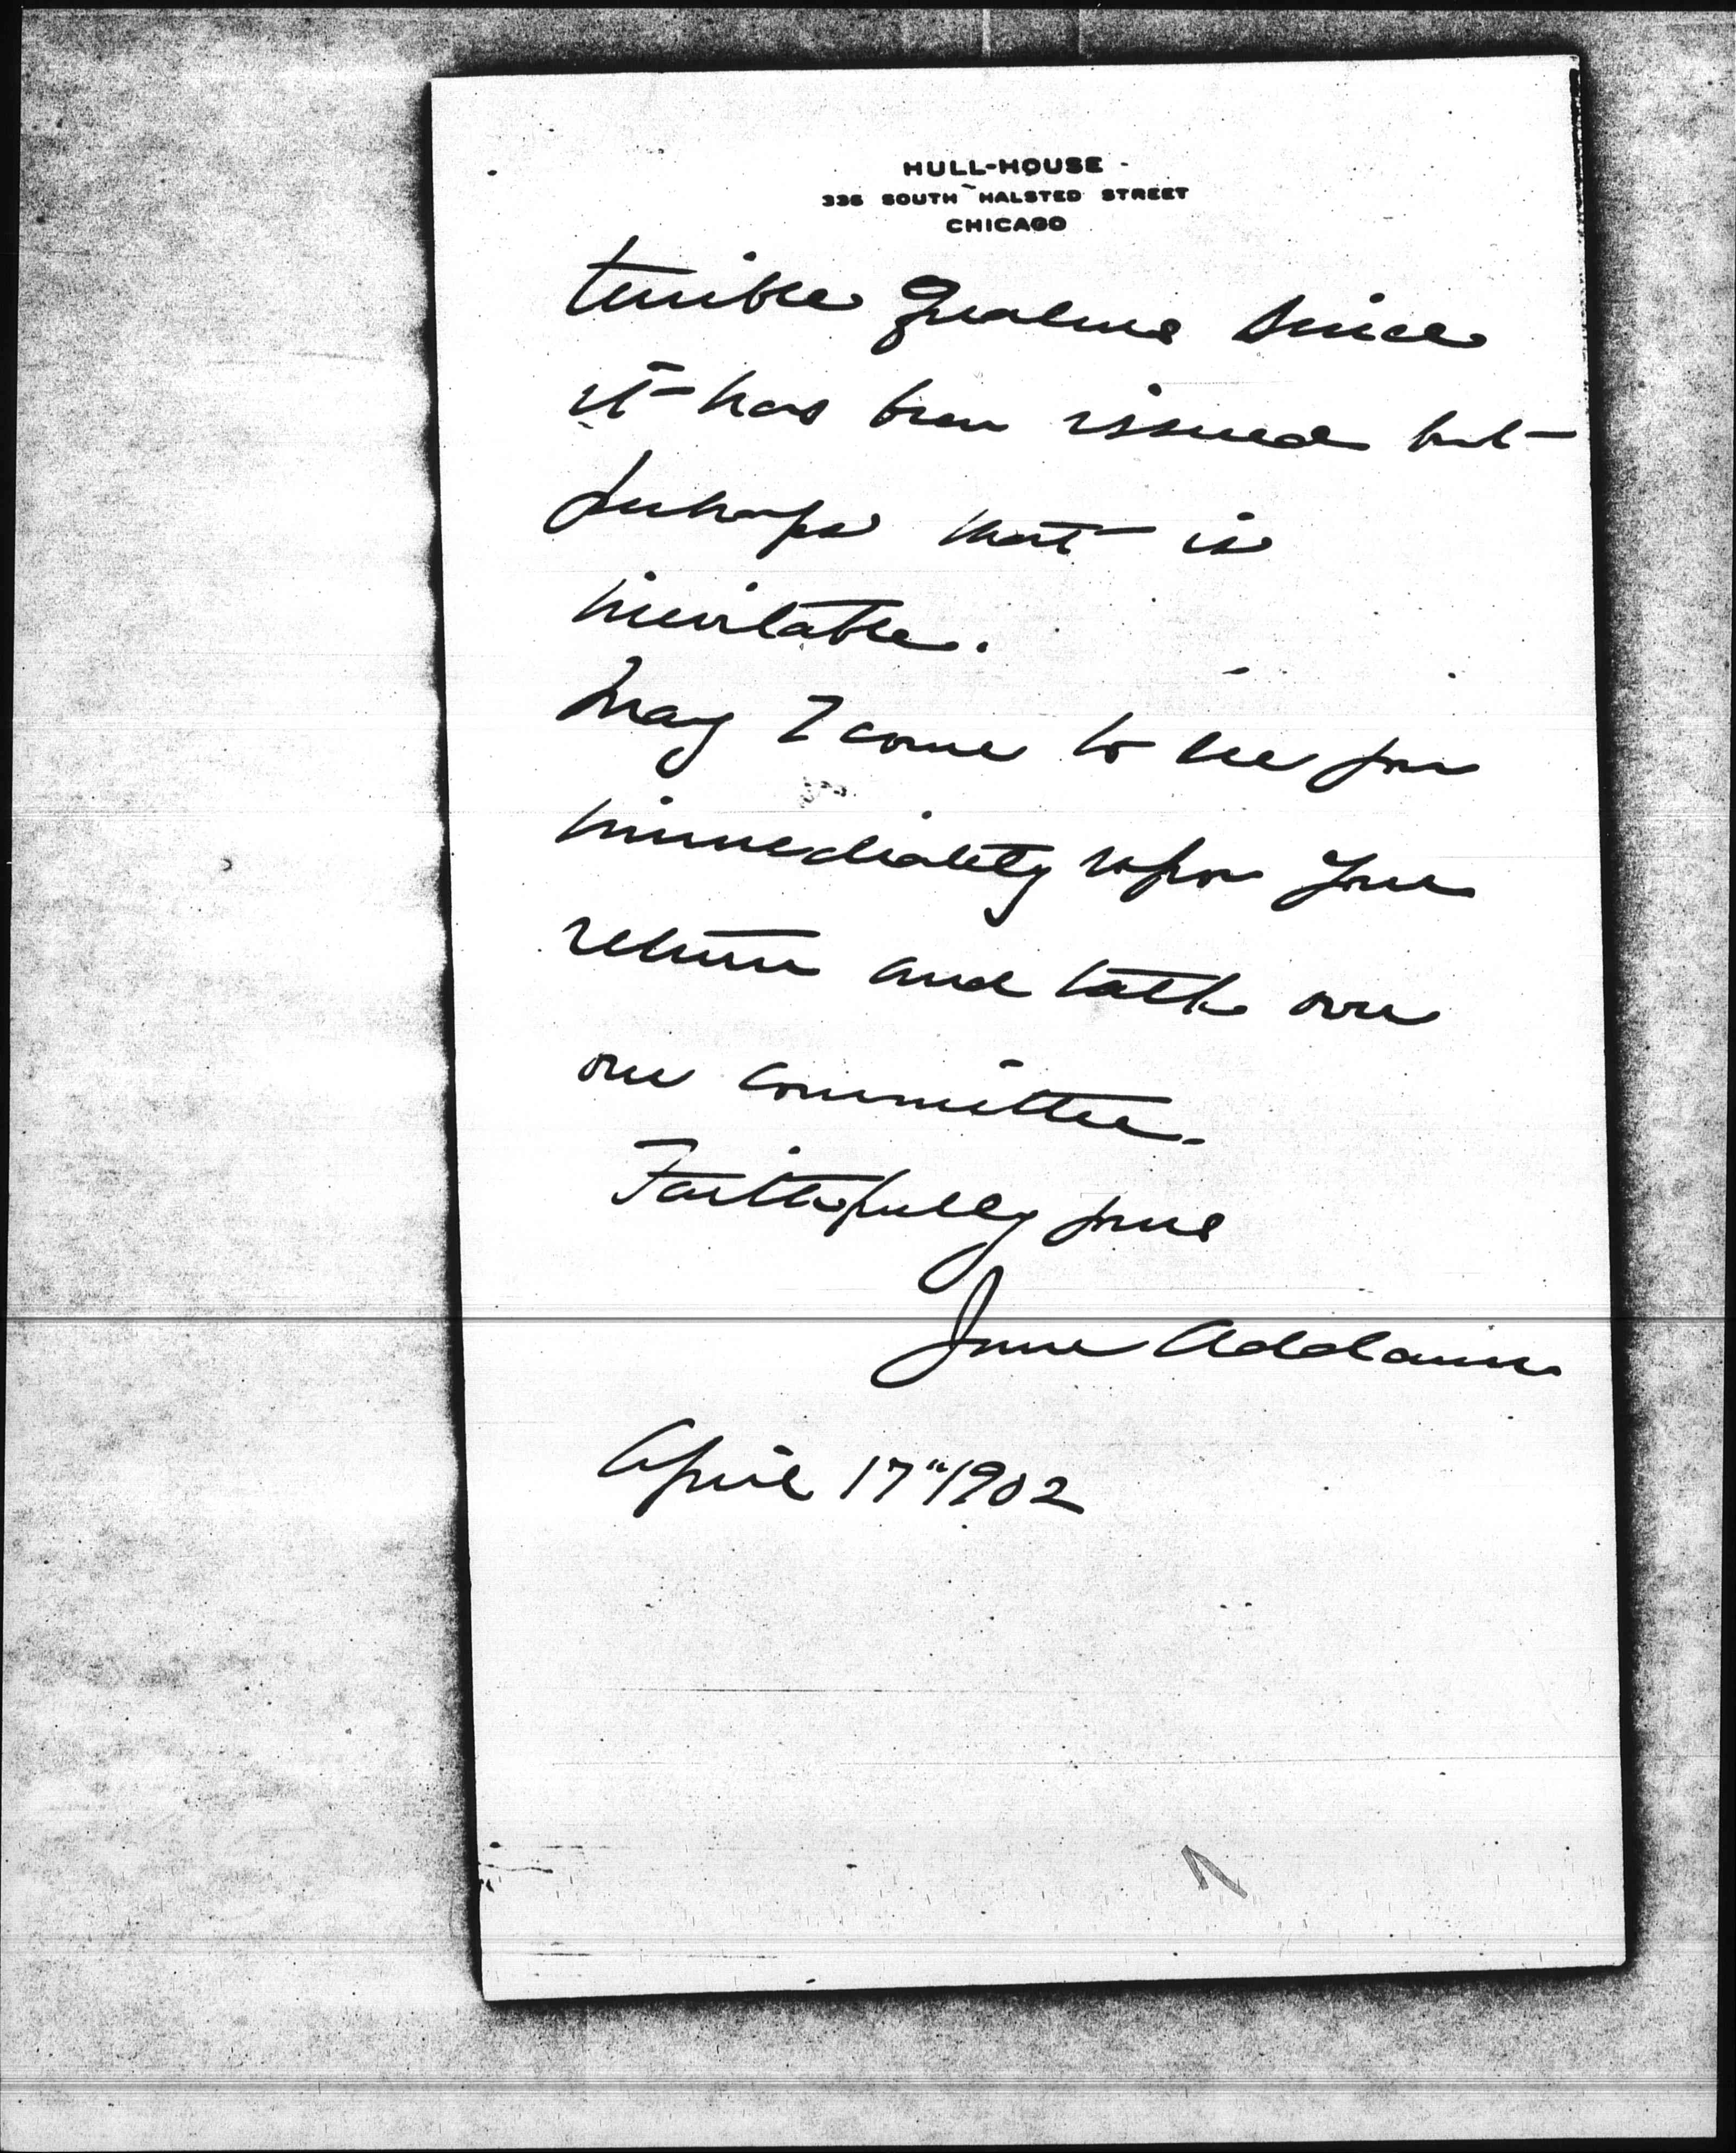 HULL-HOUSE
335 SOUTH HALSTED STREET
CHICAGO
terrible qualms since
it has been issued but
perhaps that is
inevitable.
May I come to see you
immediately upon your
return and talk over
our committee.
Faithfully yours
Jane Addams
April 17" 1902